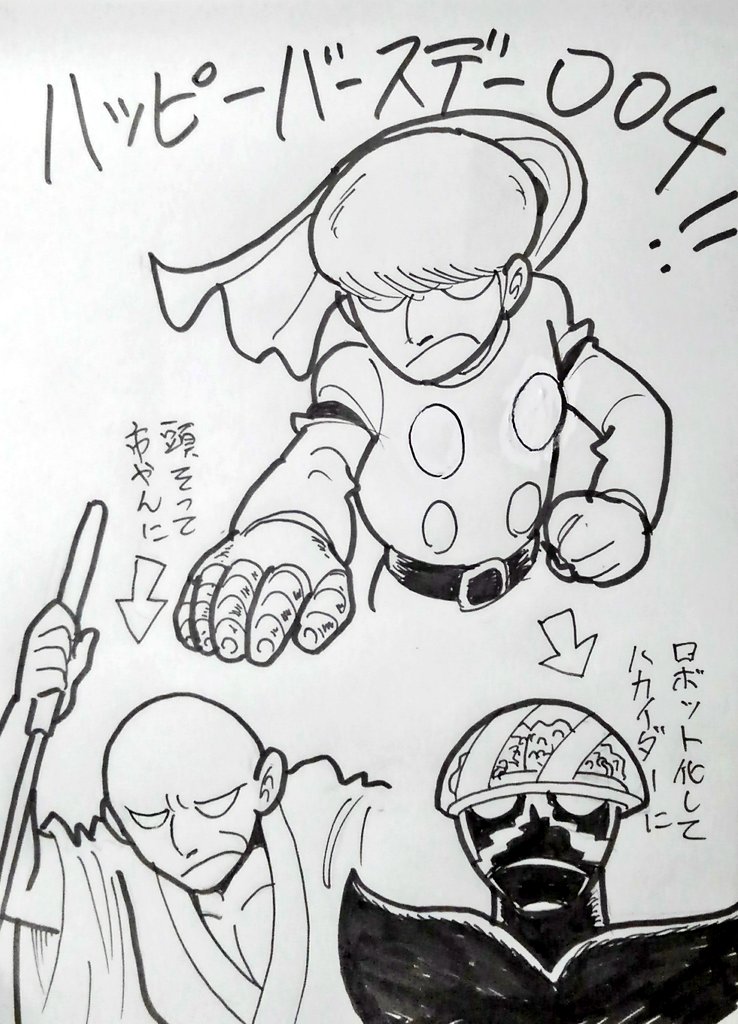 ハッピーバースデー004!!
頭そって
市やんに
ロボット化して
ハカイダーに